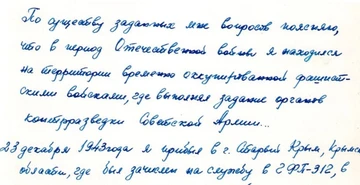 По существу заданных мне вопросов поясняю,
что в период Отечественной войны я находился
на территории временно оккупированной фашист-
скими войсками, где выполнял задание органов
контрразведки Советской Армии...
23 декабря 1943 года я прибыл в г. Старый Крым, Крымс
области, где был зачислен на службу в ГФП-312, в